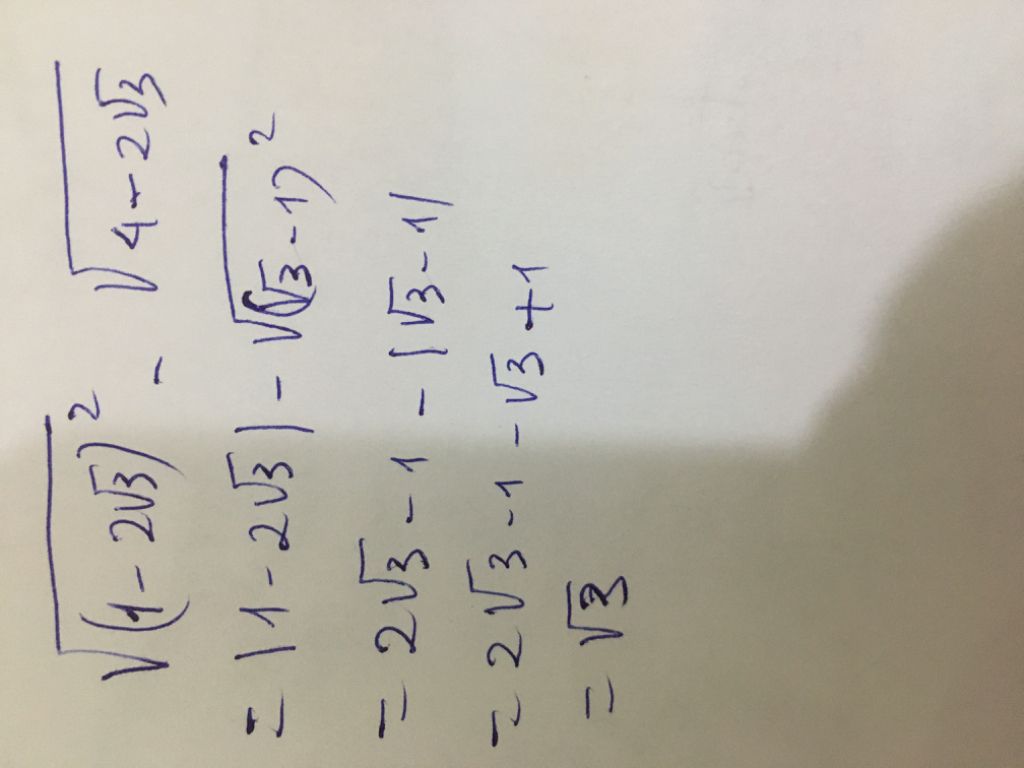 √(1-2√3)² - √4-2√3
= |1-2√3| - √(√3-1)²
= 2√3-1 - |√3-1|
= 2√3-1-√3+1
= √3